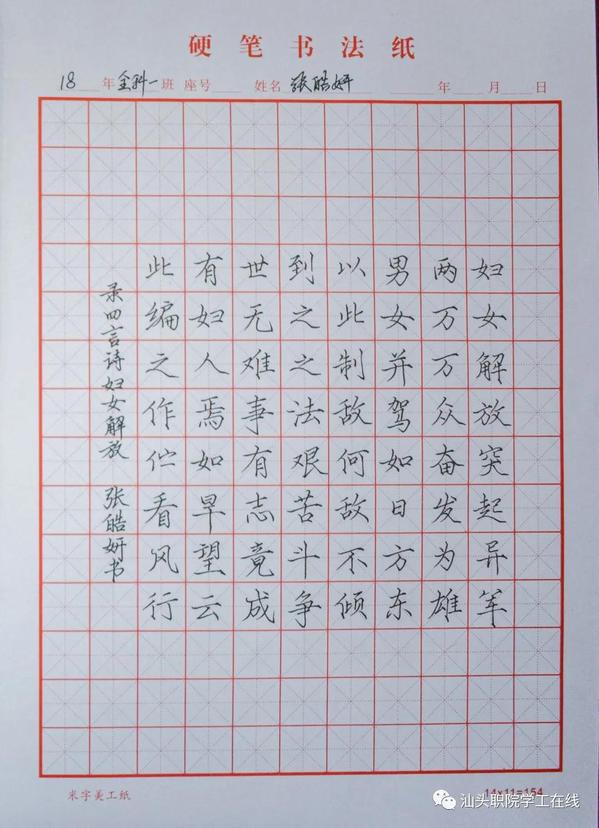 硬笔书法纸
18年全科一班 座号 姓名 张皓妍 年 月 日
妇女解放突起异军
两万万众奋发为雄
男女并驾如日方东
以此制敌何敌不倾
到之之法艰苦斗争
世无难事有志竟成
有妇人焉如旱望云
此编之作伫看风行
录四言诗妇女解放 张皓妍书
米字美工纸
14×11=154
汕头职院学工在线